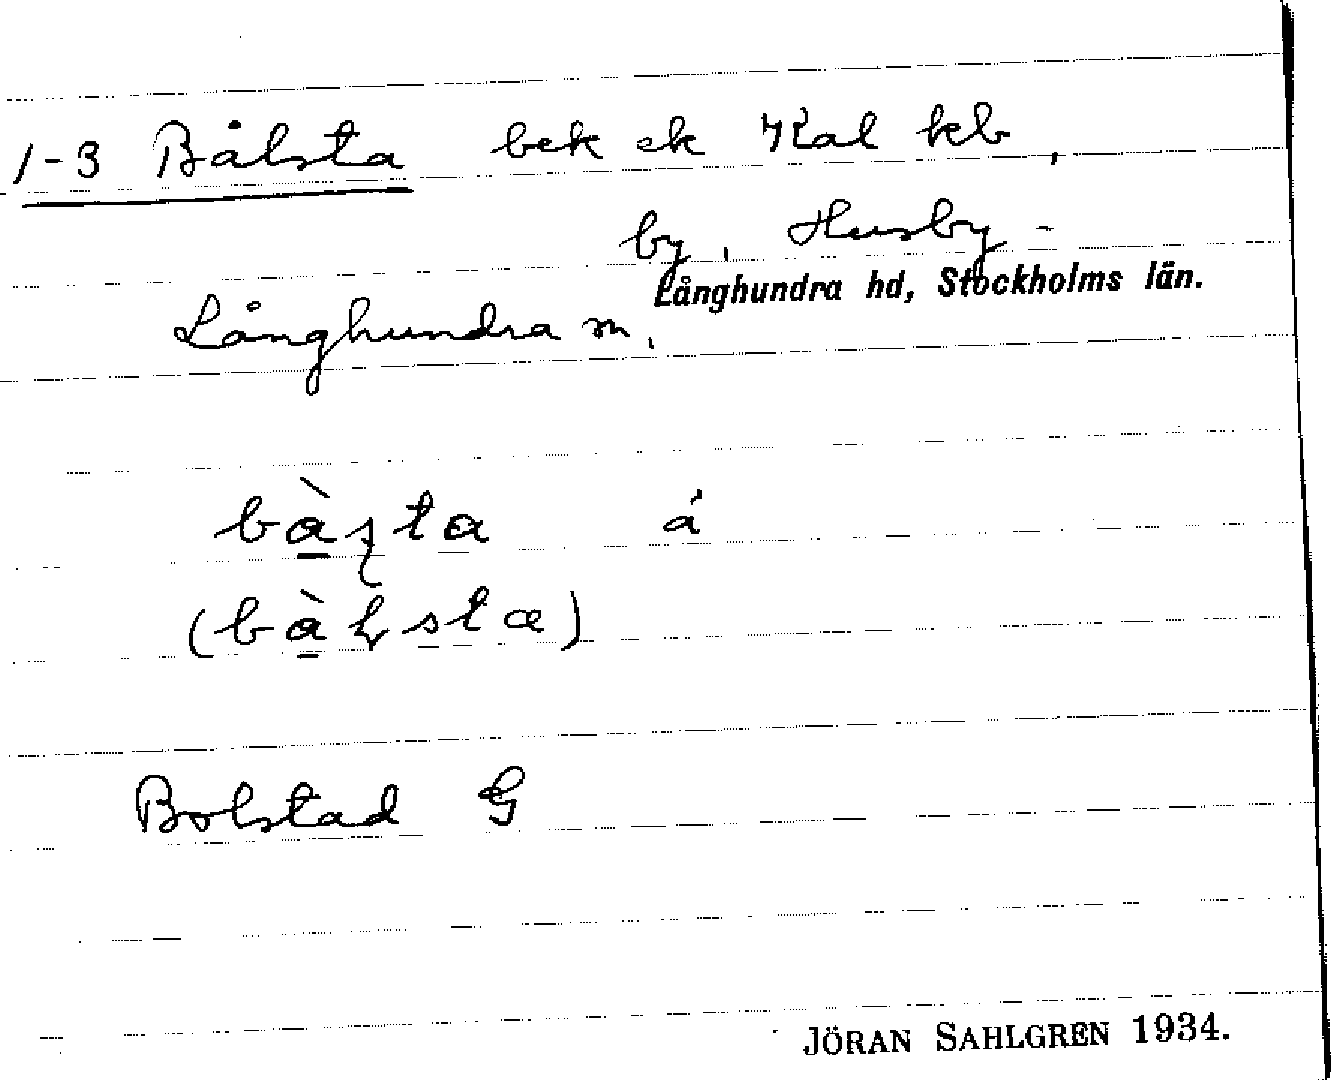 1-3 Bålsta bek ek Kal kb,
by, Husby-
Långhundra hd, Stockholms län.
Långhundra m,
bàʂta á
(bàɫsta)
Bolstad G
JÖRAN SAHLGREN 1934.